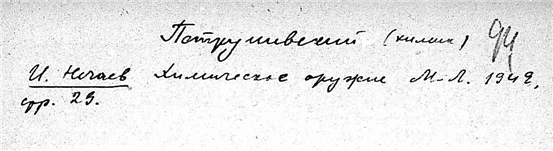 Петрушевский (химик) 94
И. Нечаев Химическое оружие М.-Л. 1942,
стр. 29.